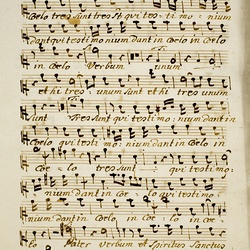 Coelo tres sunt tres st qui testi mo nium
dant qui testi mo nium dant in Coelo in Coelo
in Coelo Verbum unum
et hi tres unum sunt et hi tres unum
sunt Tres sunt qui testi mo nium dant in
Coelo qui testi mo nium dant in Coelo in
Coe lo tres sunt qui testimo
nium dant in Coe lo qui testimo
nium dant in Coelo, in coe lo in coe
lo Pater Verbum et Spiritus Sanctus